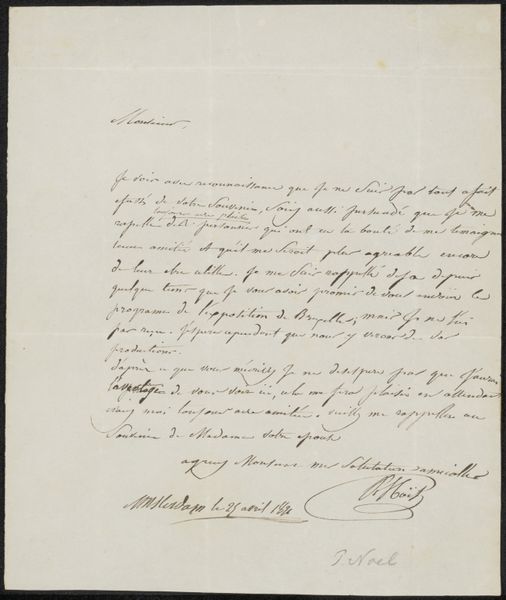 Monsieur,
Je vois avec reconnaissance que je ne suis pas tout a fait
effacé de votre souvenir, soiez aussi persuadé que je me
toujours avec plaisir
rapelle des personnes qui ont eu la bonté de me temoigner
leurs amitiés et qu'il me seroit plus agreable encore
de leur etre utille. Je me suis rappellé deja depuis
quelque tems que je vous avois promis de vous envoier le
programe de l'exposition de Bruxelles, mais je ne l'ai
pas reçu. J'espere cependant que nous y verons de vos
productions.
d'après ce que vous m'ecrivez je ne desespere pas que j'aurai
de vous voir ici, cela me fera plaisir en attendant
moi toujours avec amitié. veuillez me rappeller au
souvenir de Madame votre epouse
agreez Monsieur mes salutations amicalles
PNoël
Amsterdam le 25 avril
P Noel